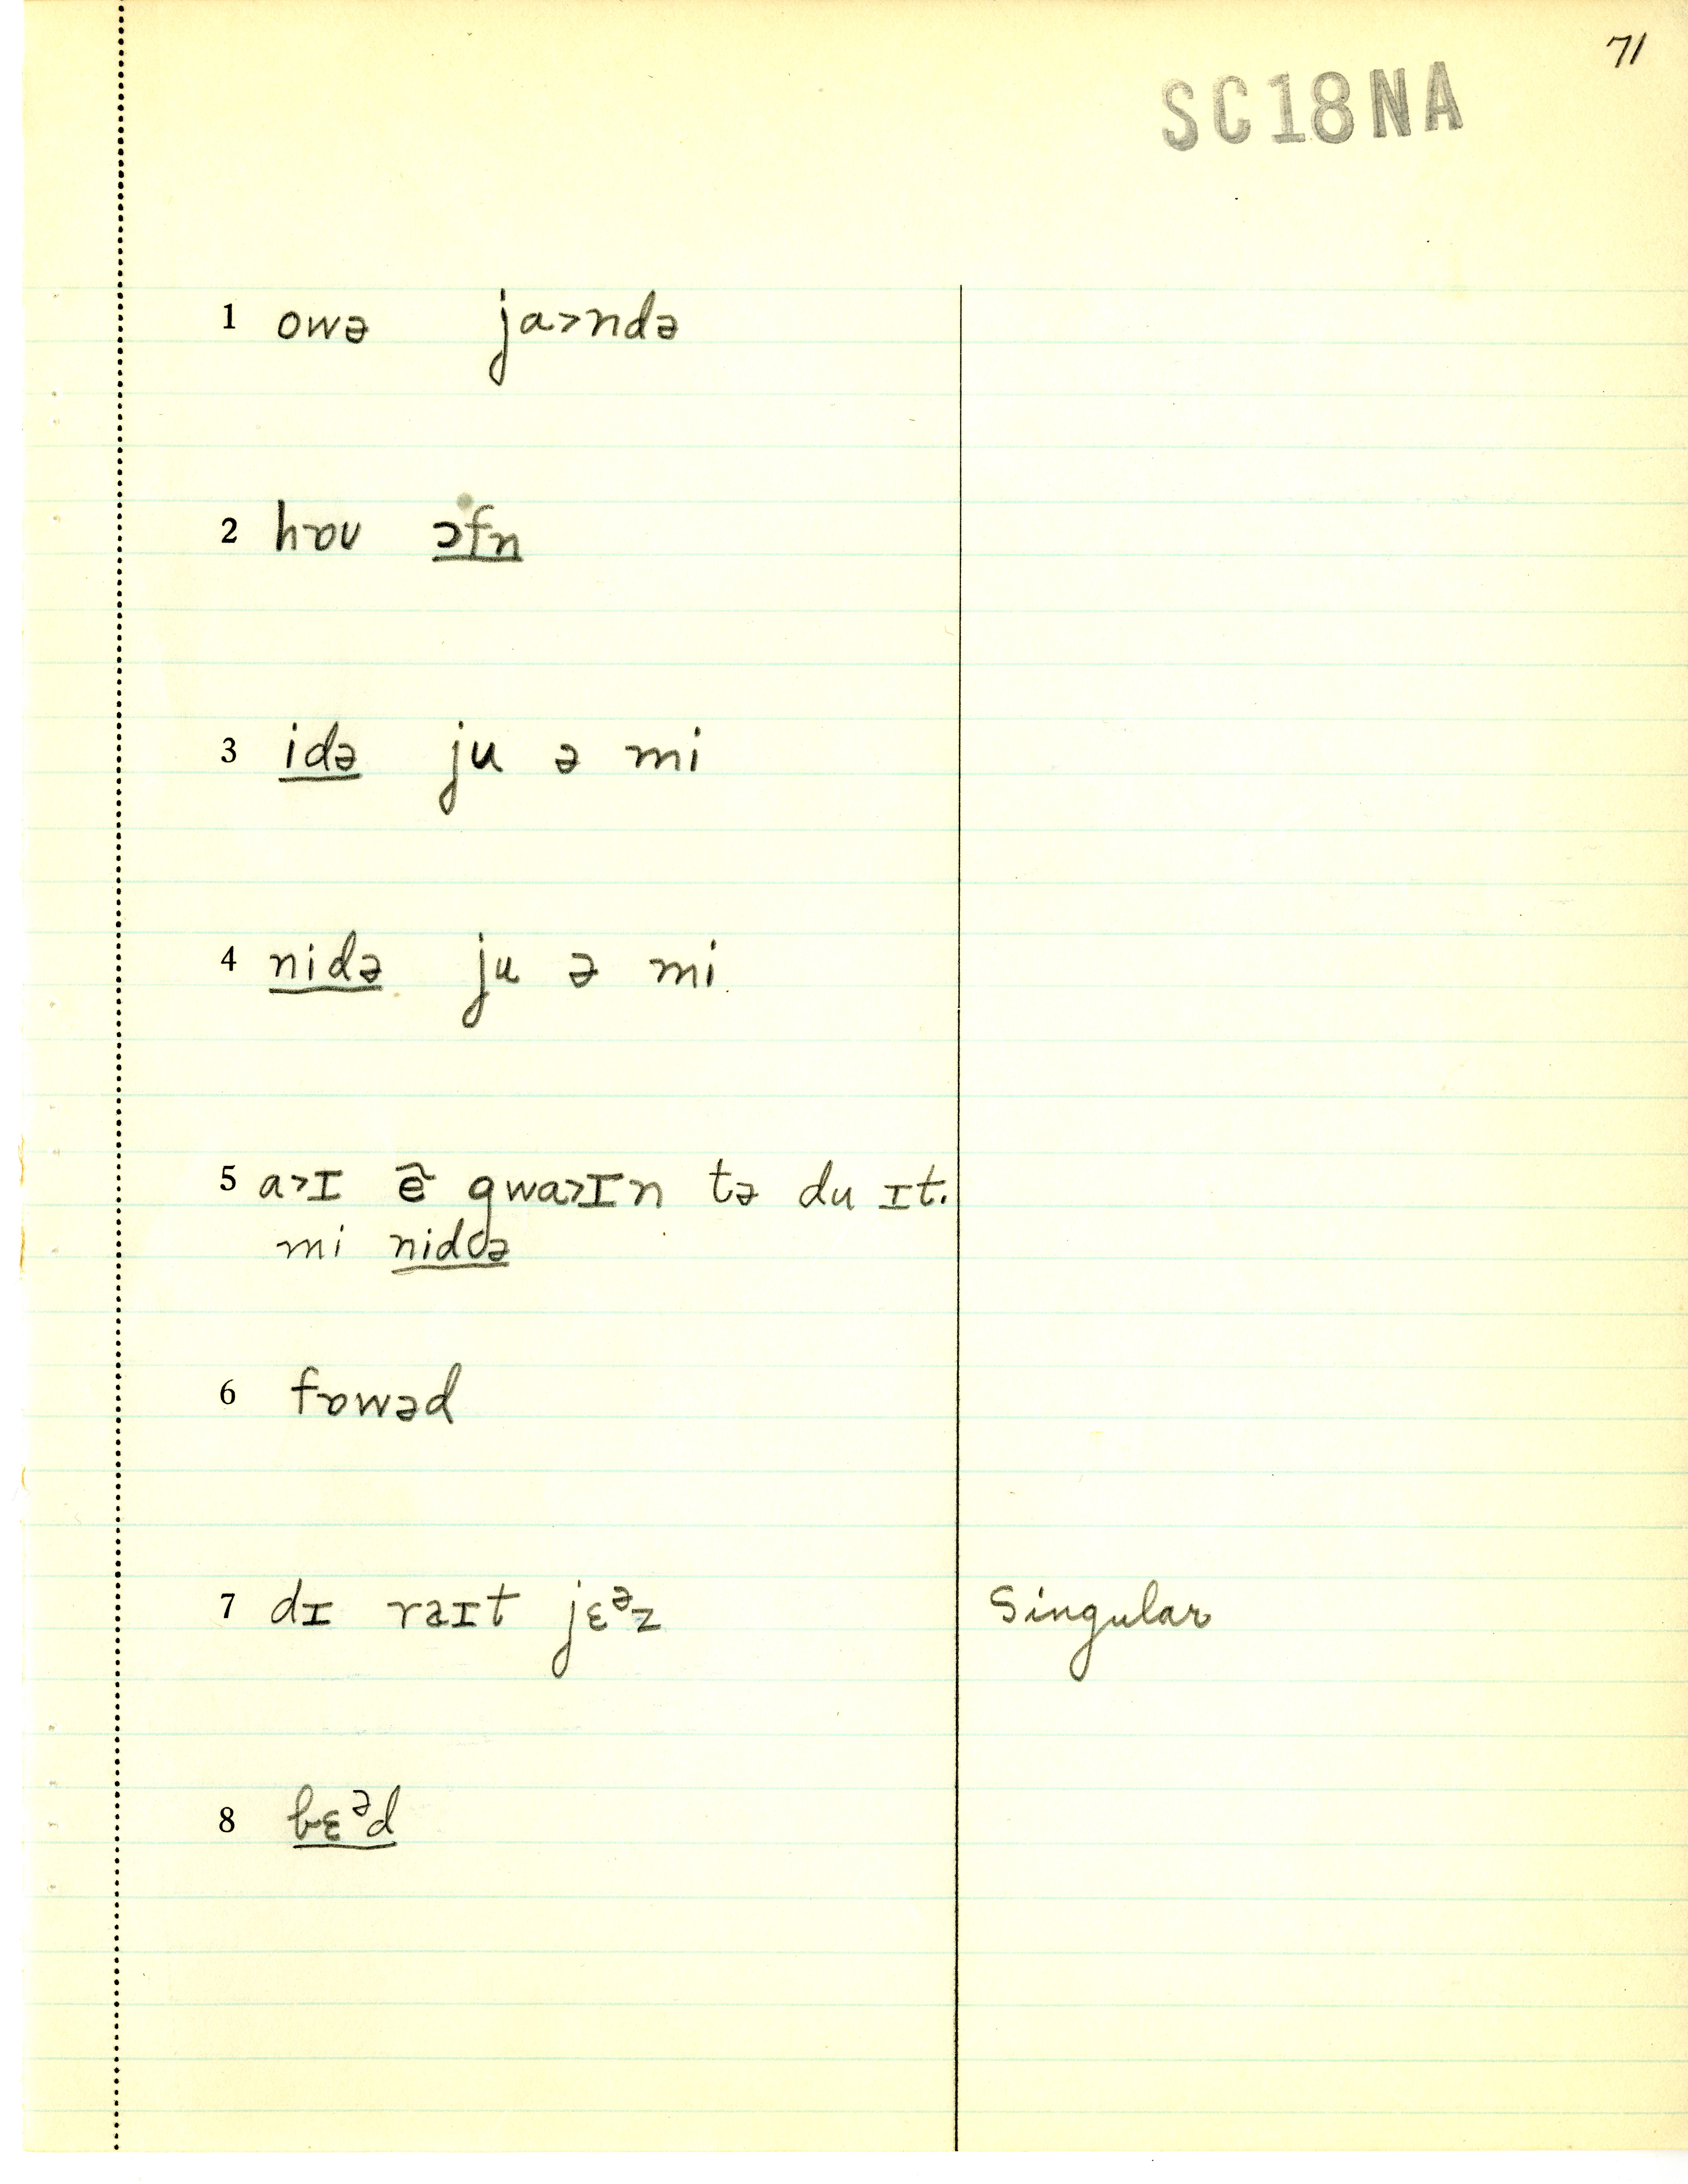 71
SC18NA
1 owə ja>ndə
2 hɒʊ ɔfn
3 idə ju ə mi
4 nidə ju ə mi
5 a>ɪ ẽ gwa>ɪn tə du ɪt.
mi niddə
6 fɒwəd
7 dɪ raɪt jɛᵊz Singular
8 bɛᵊd